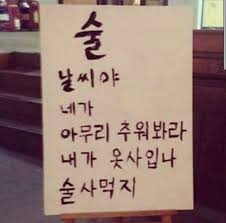 술
날씨야
네가
아무리 추워봐라
내가 옷사입나
술사먹지